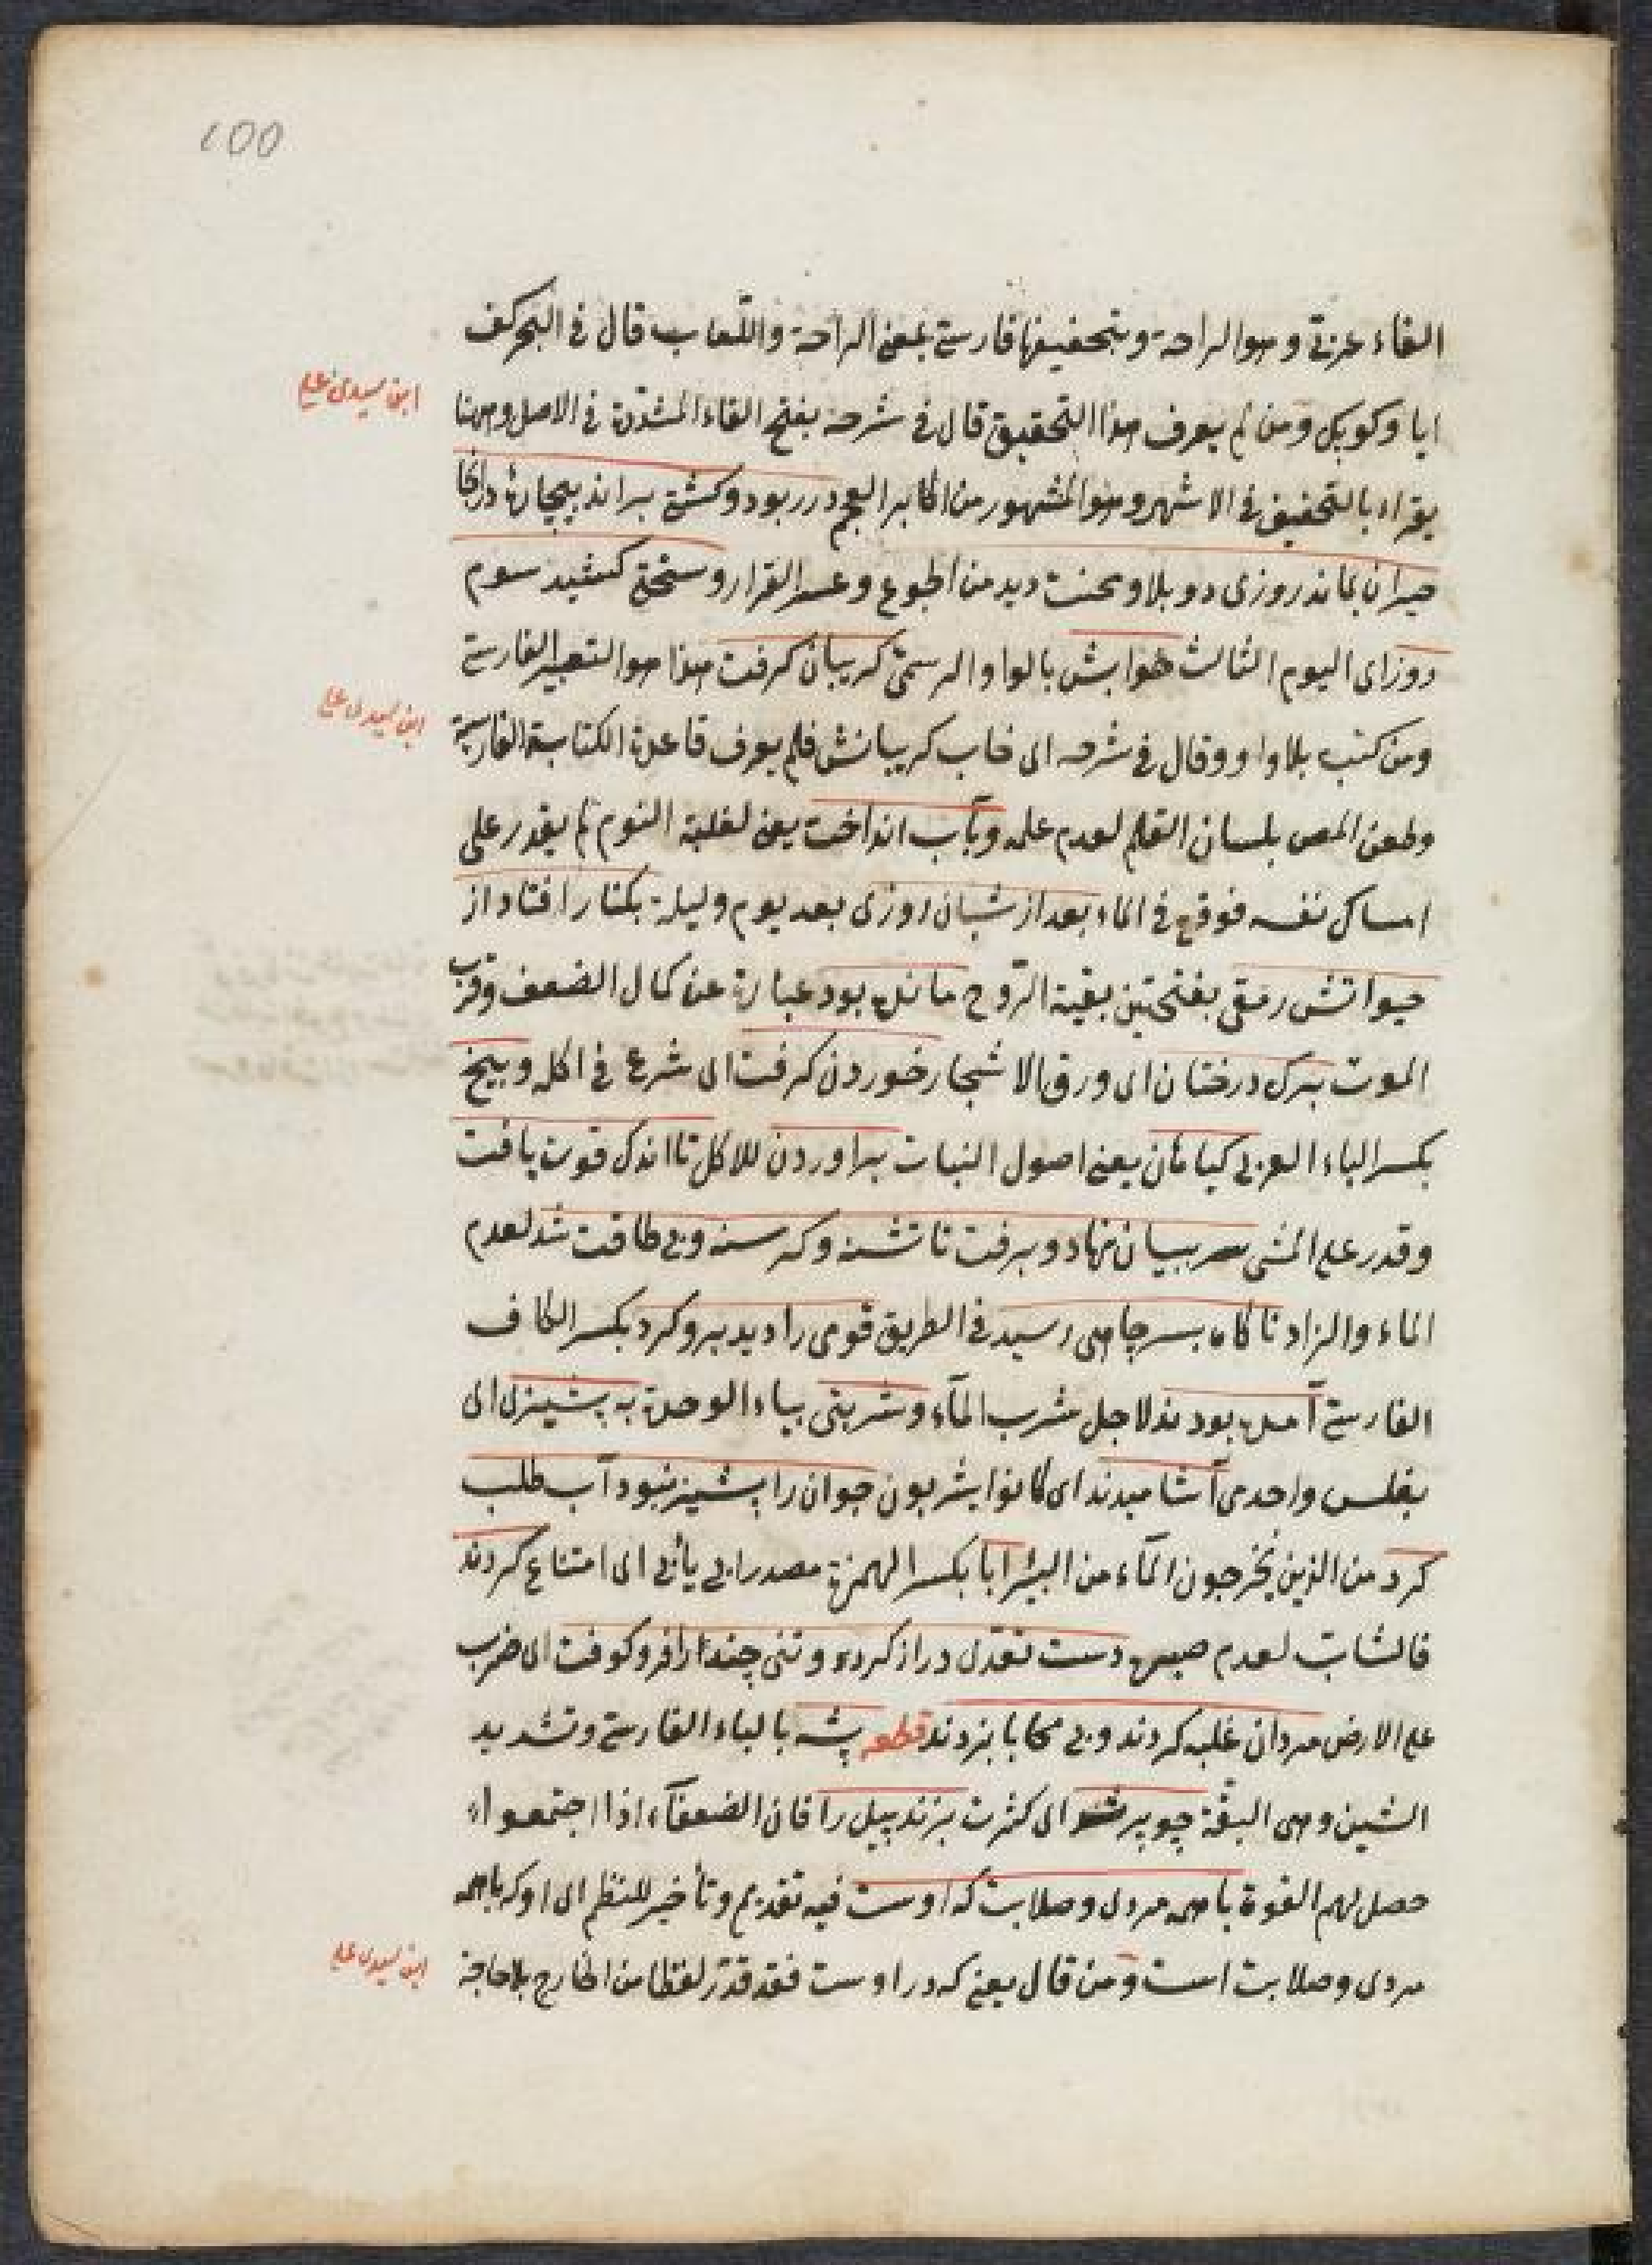 ١٥٥
الفاء عربىّ وهو الراحة وبتخفيفها فارسىّ بمعنى الراحة واللّعاب قال فى البحر كف
ابن سيدى على
ايا وكوبك ومن لم يعرف هذا التحقيق قال فى شرحه بفتح الفاء المشدّدة فى الاصل وههنا
يقراء بالتخفيف فى الاشهر وهو المشهور من اكابر العجم در ربود وكشتى براند بيچاره در انجا
حيران بماند روزى دو بلا ومحنت ديد من الجوع وعدم القرار وسختى كشيد سوم
روز اى اليوم الثالث خوابش بالواو الرسمى كريبان كرفت هذا هو التعبير الفارسىّ
ابن سيدى على
ومن كتب بلا واو وقال فى شرحه اى خاب كريبانش فلم يعرف قاعدة الكتابة الفارسية
وطعن المص بلسان القلم لعدم علمه وبآب انداخت يعنى لغلبة النوم لم يقدر على
امساك نفسه فوقع فى الماء بعد از شبان روزى بعد يوم وليلة بكنار افتاد از
حيواتش رمقى بفتحتين بقية الرّوح مانده بود عبارة عن كمال الضعف وقرب
الموت برك درختان اى ورق الاشجار خوردن كرفت اى شرع فى اكله وبيخ
بكسر الباء العربى كياهان يعنى اصول النبات براوردن للاكل تا اندك قوت يافت
وقدر على المشى سر ببيابان نهاد وبرفت تا تشنه وكرسنه وبى طاقت شد لعدم
الماء والزاد ناكاه بسر چاهى رسيد فى الطريق قومى را ديد برو كرد بكسر الكاف
الفارسىّ آمده بودند لاجل شرب المآء وشربتى بياء الوحدة به پشيزى اى
بفلس واحدى آشاميدند اى كانوا يشربون جوان را پشيز نبود آب طلب
كرد من الذين يخرجون المآء من البئر ابا بكسر الهمزة مصدر ابى يأبى اى امتناع كردند
فالشابّ لعدم صبره دست تعدّى دراز كرده وتنى چند را فرو كوفت اى ضرب
على الارض مردان غلبه كردند وبى محابا بزدند قطعه پشّه بالباء الفارسىّ وتشديد
الشين وهى البقّة چو پر شد اى كثرت بزند پيل را فان الضعفآء اذا اجتمعوا
حصل لهم القوة با همه مردى وصلابت كه اوست فيه تقديم وتأخير للنظم اى او كه با همه
ابن سيدى على
مردى وصلابت است ومن قال يعنى كه در اوست فقد قدّر لفظا من الخارج بلا حاجة